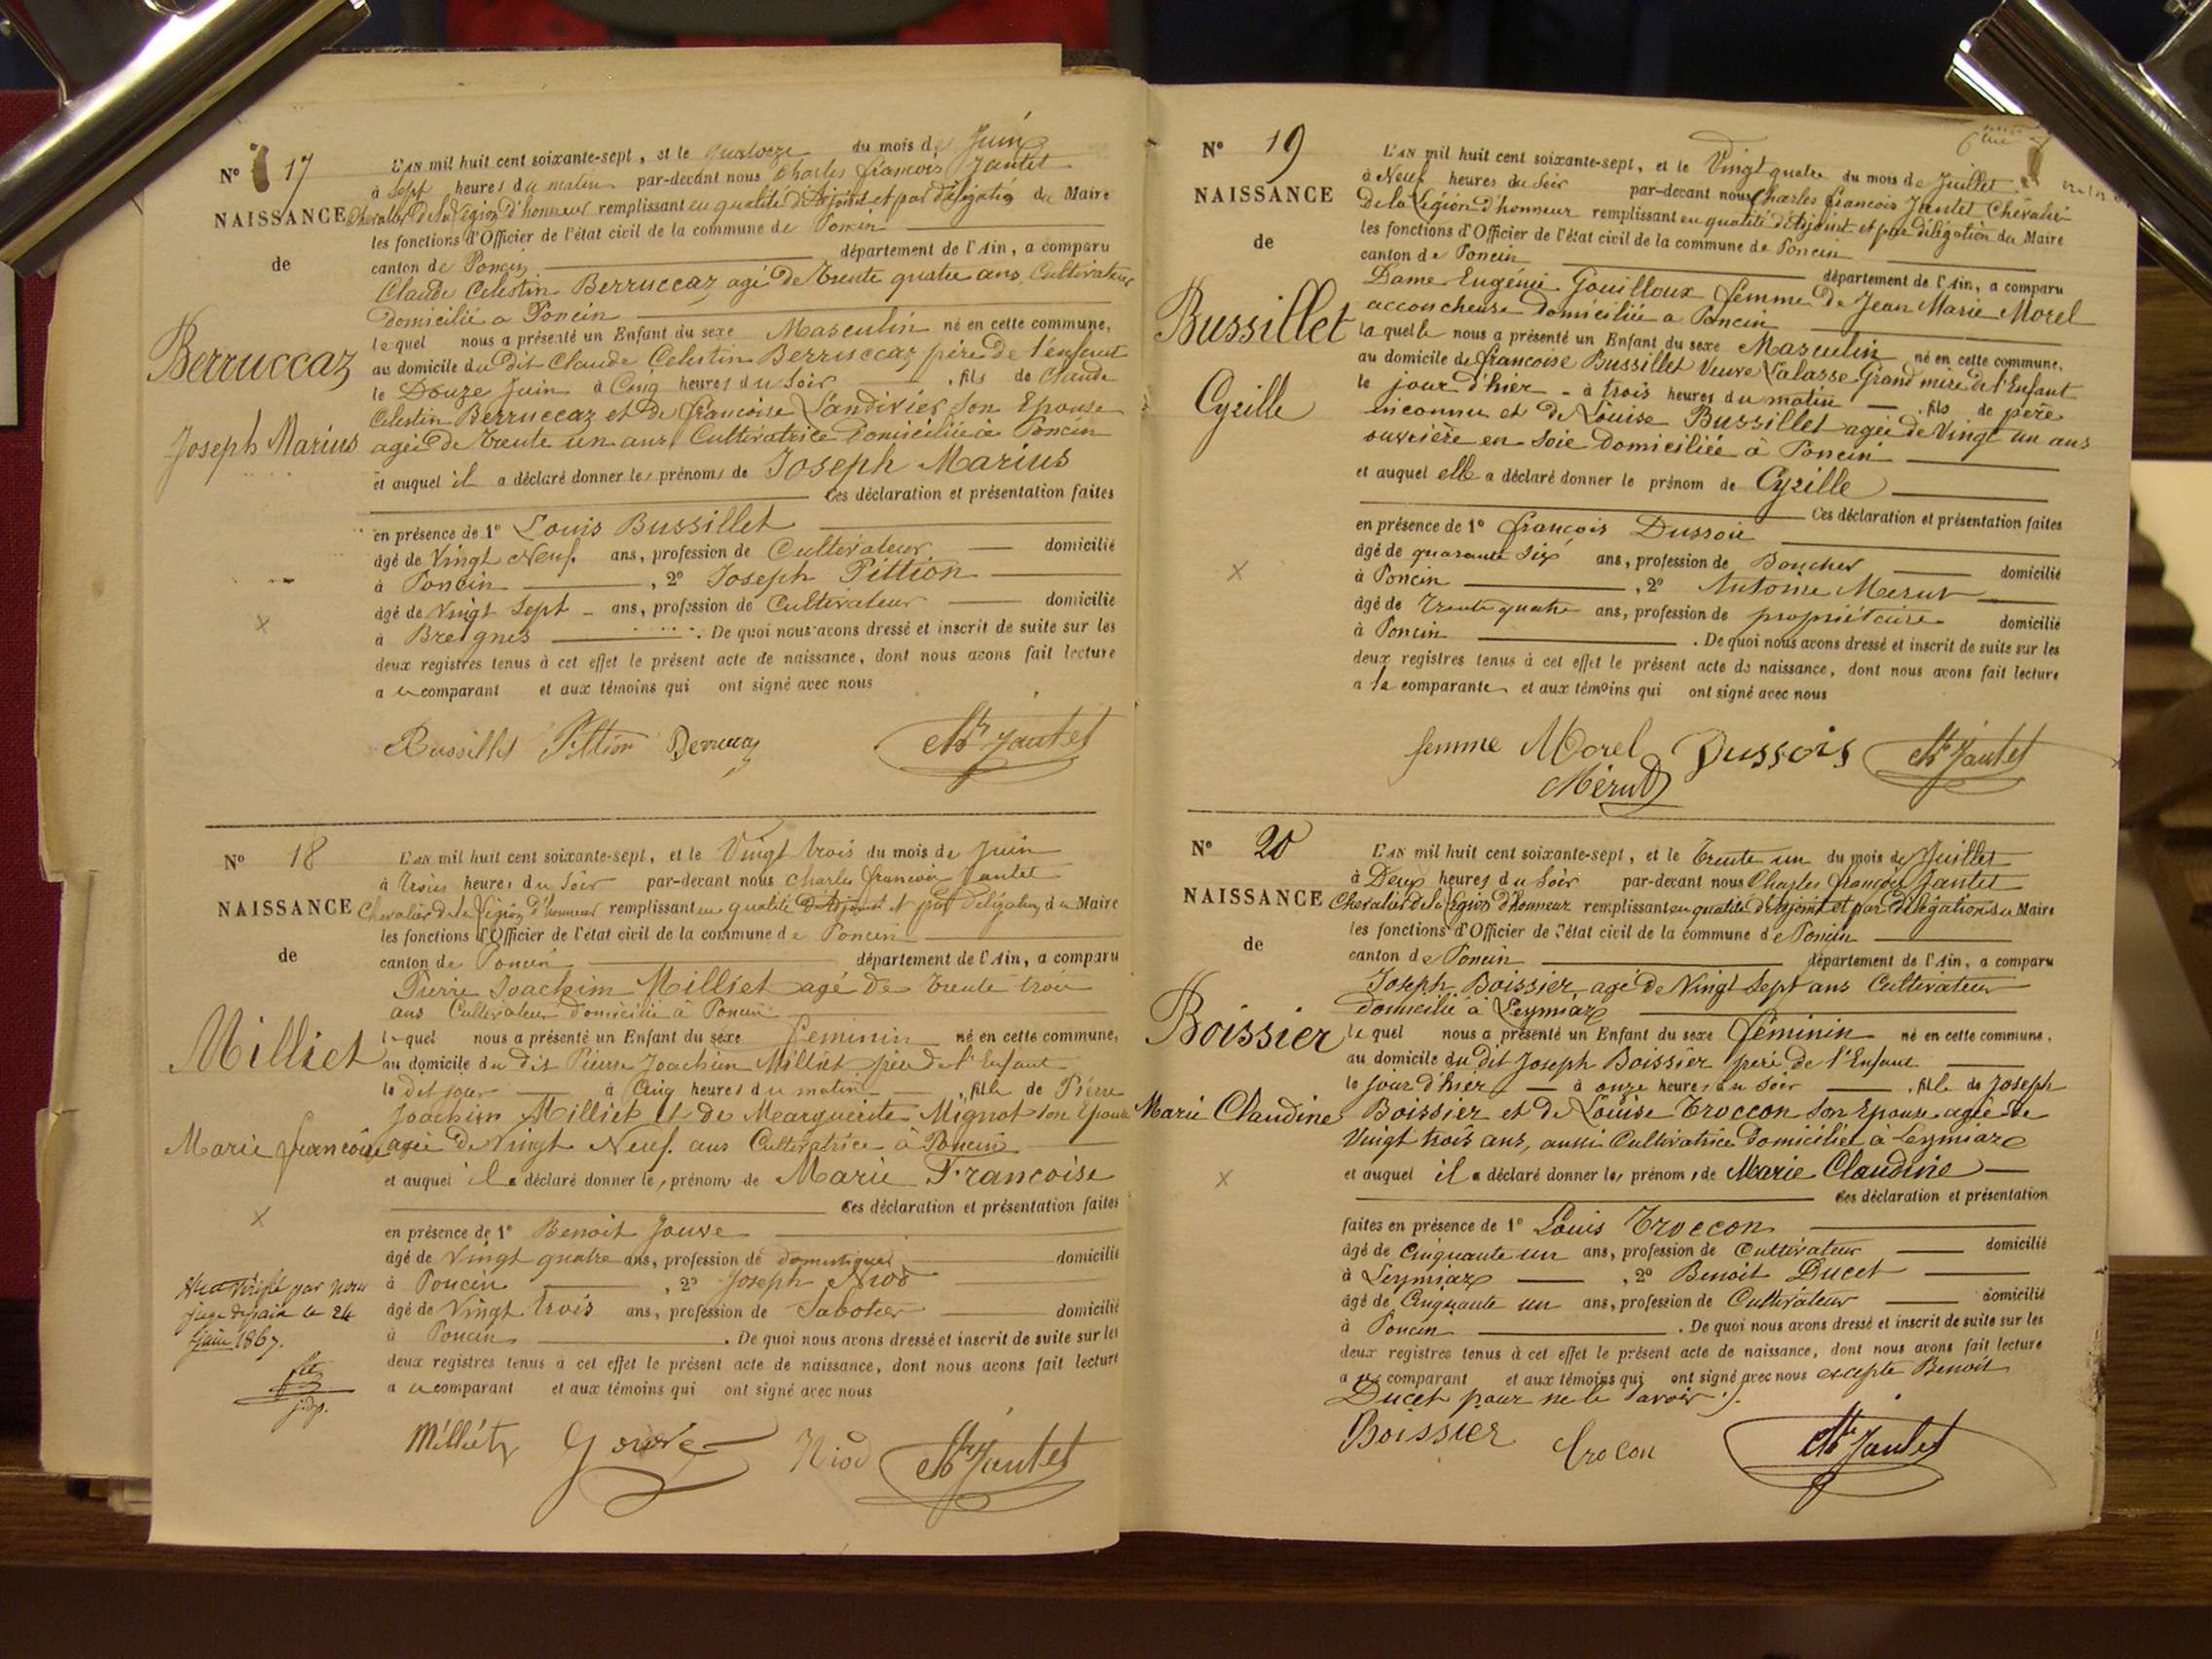 N° 17
NAISSANCE
de
Berruccaz
Joseph Marius
L'AN mil huit cent soixante-sept, et le quatorze du mois de Juin
à Sept heures du matin par-devant nous Charles françois Jantet
Chevalier de la Légion d'honneur remplissant en qualité d'Adjoint et par délégation du Maire
les fonctions d'Officier de l'état civil de la commune de Poncin
canton de Poncin département de l'Ain, a comparu
Claude Celestin Berruccaz agé de trente quatre ans, Cultivateur
domicilié a Poncin
lequel nous a présenté un Enfant du sexe Masculin né en cette commune,
au domicile du dit Claude Celestin Berruccaz père de l'enfant
le Douze Juin à Cinq heures du Soir, fils de Claude
Celestin Berruccaz et de françoise Son Epouse
agée de trente un ans Cultivatrice domiciliée à Poncin
et auquel il a déclaré donner les prénoms de Joseph Marius
Ces déclaration et présentation faites
en présence de 1° Louis Bussillet
âgé de Vingt Neuf ans, profession de Cultivateur domicilié
à Poncin, 2° Joseph Pittion
âgé de Vingt Sept ans, profession de Cultivateur domicilié
à Breignes. De quoi nous avons dressé et inscrit de suite sur les
deux registres tenus à cet effet le présent acte de naissance, dont nous avons fait lecture
a u comparant et aux témoins qui ont signé avec nous
Bussillet Pittion Berruccaz Ch Jantet
N° 18
NAISSANCE
de
Milliet
Marie françoise
L'AN mil huit cent soixante-sept, et le Vingt trois du mois de Juin
à trois heures du Soir par-devant nous Charles françois Jantet
Chevalier de la Légion d'honneur remplissant en qualité d'Adjoint et par délégation du Maire
les fonctions d'Officier de l'état civil de la commune de Poncin
canton de Poncin département de l'Ain, a comparu
Pierre Joachim Milliet agé de trente trois
ans Cultivateur domicilié à Poncin
lequel nous a présenté un Enfant du sexe feminin né en cette commune,
au domicile du dit Pierre Joachim Milliet père de l'Enfant
le dit jour à Cinq heures du matin, fille de Pierre
Joachim Milliet et de Marguerite Mignot son Epouse
agée de Vingt Neuf ans Cultivatrice à Poncin
et auquel il a déclaré donner les prénoms de Marie Francoise
Ces déclaration et présentation faites
en présence de 1° Benoit Jouve
âgé de Vingt quatre ans, profession de domestique domicilié
à Poncin, 2° Joseph Niod
âgé de Vingt trois ans, profession de Sabotier domicilié
à Poncin. De quoi nous avons dressé et inscrit de suite sur les
deux registres tenus à cet effet le présent acte de naissance, dont nous avons fait lecture
a u comparant et aux témoins qui ont signé avec nous
par nous
juge de paix le 24
juin 1867.
j.d.p.
Milliet Gouve Niod Ch Jantet
N° 19
NAISSANCE
de
Bussillet
Cyrille
L'AN mil huit cent soixante-sept, et le Vingt quatre du mois de Juillet
à Neuf heures du Soir par-devant nous Charles françois Jantet Chevalier
de la Légion d'honneur remplissant en qualité d'Adjoint et par délégation du Maire
les fonctions d'Officier de l'état civil de la commune de Poncin
canton de Poncin département de l'Ain, a comparu
Dame Eugénie Gouilloux femme de Jean Marie Morel
accoucheuse domiciliée a Poncin
laquelle nous a présenté un Enfant du sexe Masculin né en cette commune,
au domicile de francoise Bussillet Veuve Grand mère de l'Enfant
le jour d'hier à trois heures du matin, fils de père
inconnu et de Louise Bussillet agée de Vingt un ans
ouvrière en Soie domiciliée à Poncin
et auquel elle a déclaré donner le prénom de Cyrille
Ces déclaration et présentation faites
en présence de 1° françois Dussoie
âgé de quarante Six ans, profession de Boucher domicilié
à Poncin, 2° Antoine Merut
âgé de trente quatre ans, profession de propriétaire domicilié
à Poncin. De quoi nous avons dressé et inscrit de suite sur les
deux registres tenus à cet effet le présent acte de naissance, dont nous avons fait lecture
a la comparante et aux témoins qui ont signé avec nous
femme Morel Dussois Ch Jantet
Mérut
N° 20
NAISSANCE
de
Boissier
Marie Claudine
L'AN mil huit cent soixante-sept, et le trente un du mois de Juillet
à Deux heures du Soir par-devant nous Charles françois Jantet
Chevalier de la Légion d'honneur remplissant en qualité d'Adjoint et par délégation du Maire
les fonctions d'Officier de l'état civil de la commune de Poncin
canton de Poncin département de l'Ain, a comparu
Joseph Boissier agé de Vingt Sept ans Cultivateur
domicilié à Leymiaz
lequel nous a présenté un Enfant du sexe féminin né en cette commune,
au domicile du dit Joseph Boissier père de l'Enfant
le jour d'hier à onze heures du Soir, fille de Joseph
Boissier et de Louise Troccon Son Epouse agée de
Vingt trois ans, aussi Cultivatrice domiciliée à Leymiaz
et auquel il a déclaré donner les prénoms de Marie Claudine
Ces déclaration et présentation
faites en présence de 1° Louis Troccon
âgé de Cinquante un ans, profession de Cultivateur domicilié
à Leymiaz, 2° Benoit Ducet
âgé de Cinquante un ans, profession de Cultivateur domicilié
à Poncin. De quoi nous avons dressé et inscrit de suite sur les
deux registres tenus à cet effet le présent acte de naissance, dont nous avons fait lecture
a u comparant et aux témoins qui ont signé avec nous excepte Benoit
Ducet pour ne le savoir.
Boissier Crocon Ch Jantet